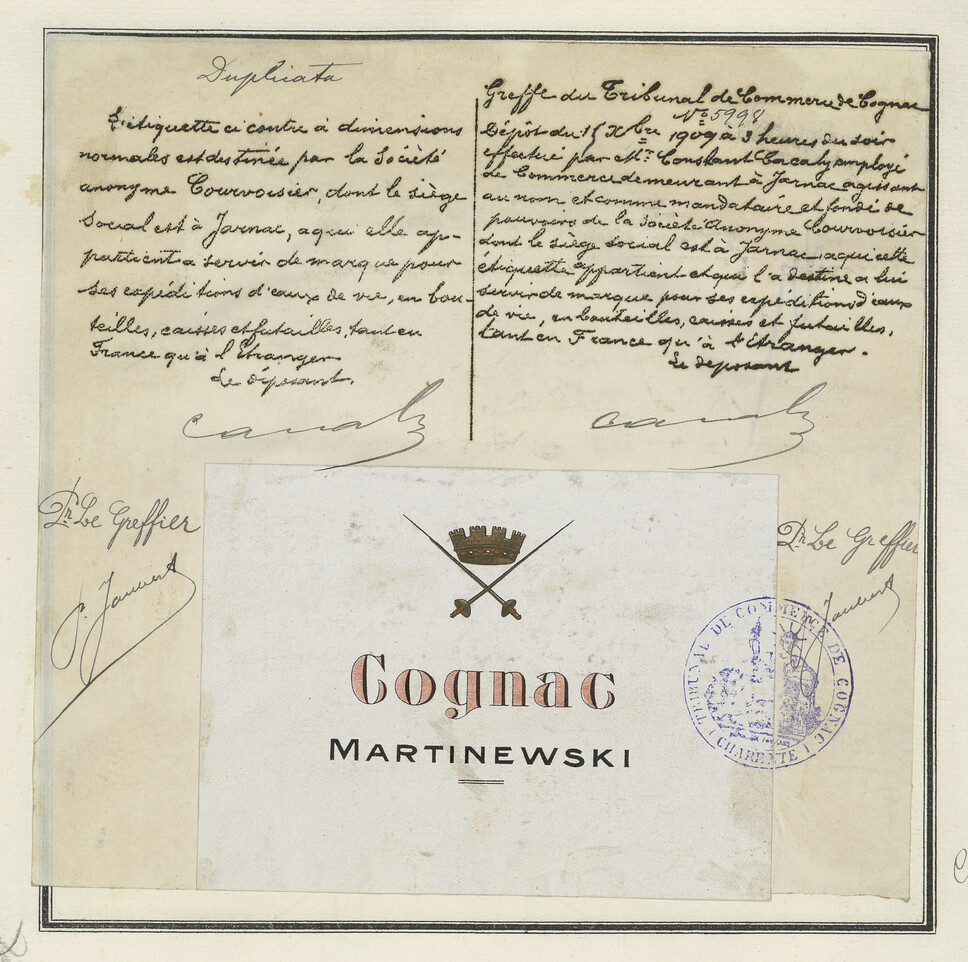 Duplicata
L'étiquette ci contre à dimensions
normales est destinée par la Société
anonyme Courvoisier, dont le siège
social est à Jarnac, a qui elle ap-
partient a servir de marque pour
ses expéditions d'eaux de vie, en bou-
teilles, caisses et futailles, tant en
France qu'à l'Etranger
Le déposant.
Greffe du Tribunal de Commerce de Cognac
No 5998
Dépôt du 15 Xbre 1909 à 3 heures du soir
effectué par Mr. Constant employé
de Commerce demeurant à Jarnac agissant
au nom et comme mandataire et fondé de
pouvoirs de la Société Anonyme Courvoisier
dont le siège social est à Jarnac, a qui cette
étiquette appartient et qui l'a destine a lui
servir de marque pour ses expéditions d'eaux
de vie, en bouteilles, caisses et futailles,
tant en France qu'à l'étranger.
Le déposant
Pr Le Greffier
Jaubert
Pr Le Greffier
Jaubert
TRIBUNAL DE COMMERCE DE COGNAC
(CHARENTE)
Cognac
MARTINEWSKI